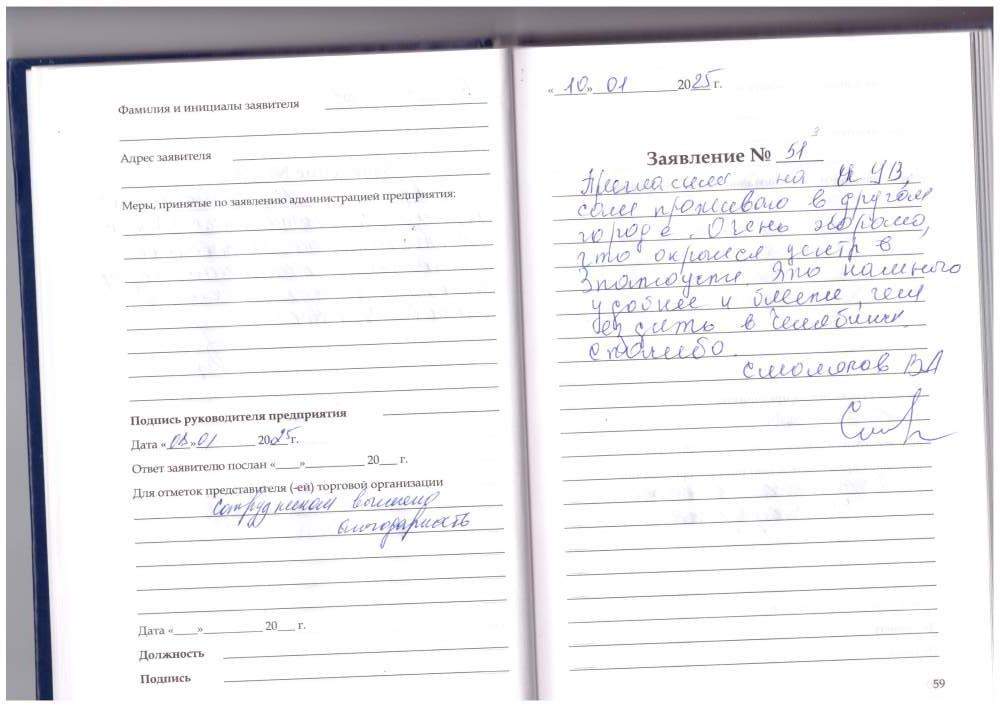 Фамилия и инициалы заявителя
Адрес заявителя
Меры, принятые по заявлению администрацией предприятия:
Подпись руководителя предприятия
Дата «03»01 2025г.
Ответ заявителю послан «    » 20    г.
Для отметок представителя (-ей) торговой организации
сотрудникам
благодарность
Дата «    » 20    г.
Должность
Подпись
«10» 01 2025 г.
Заявление № 51
Пригласили на УВ,
сам проживаю в другом
городе. Очень хорошо,
что открылся центр в
Златоусте. Это намного
удобнее и ближе, чем
ездить в Челябинск.
спасибо.
ВА
59